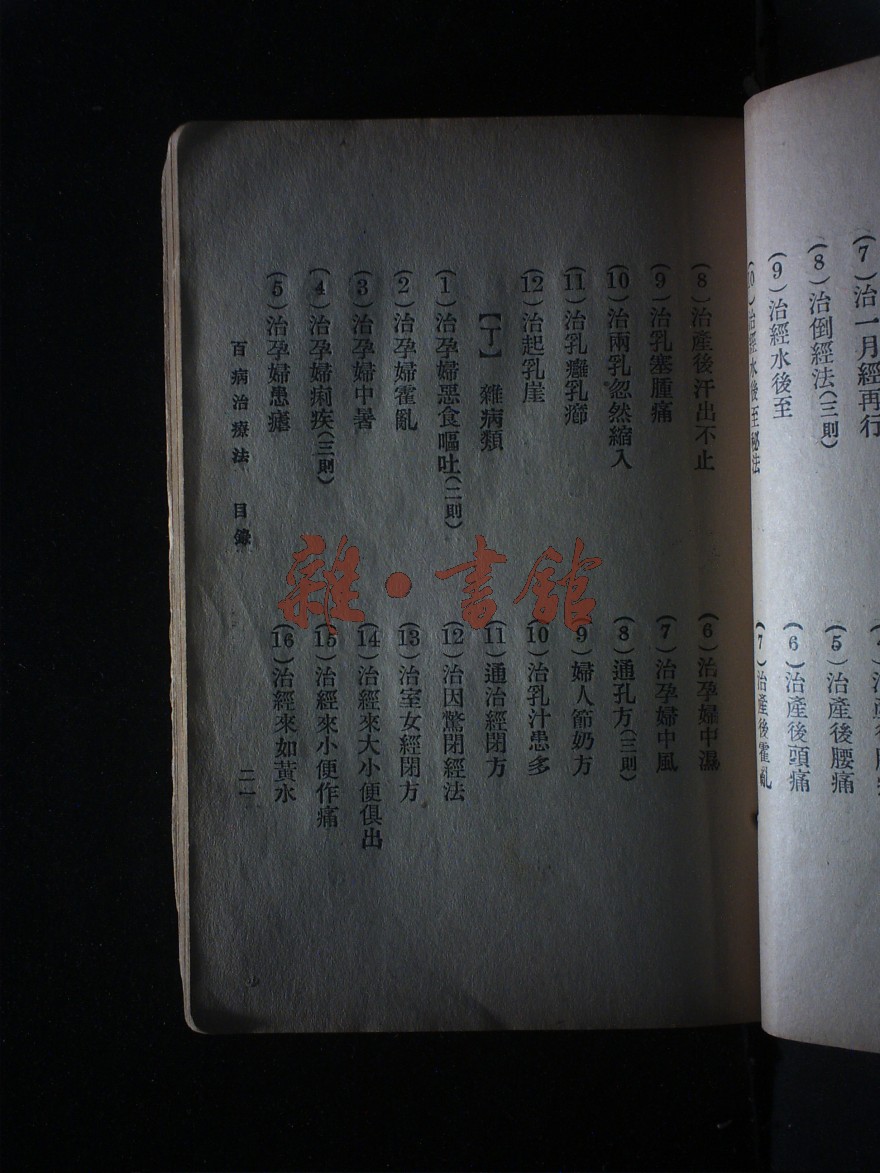 (7)治一月經再行
(8)治倒經法(三則)
(9)治經水後至
(10)治經水後至秘法
(5)治產後腰痛
(6)治產後頭痛
(7)治產後霍亂
(8)治產後汗出不止
(9)治乳塞腫痛
(10)治兩乳忽然縮入
(11)治乳癰乳癤
(12)治起乳崖
【丁】 雜病類
(1)治孕婦惡食嘔吐(二則)
(2)治孕婦霍亂
(3)治孕婦中暑
(4)治孕婦痢疾(三則)
(5)治孕婦患瘧
(6)治孕婦中濕
(7)治孕婦中風
(8)通孔方(三則)
(9)婦人節奶方
(10)治乳汁患多
(11)通治經閉方
(12)治因驚閉經法
(13)治室女經閉方
(14)治經來大小便俱出
(15)治經來小便作痛
(16)治經來如黃水
百病治療法 目錄
二一
雜·書館